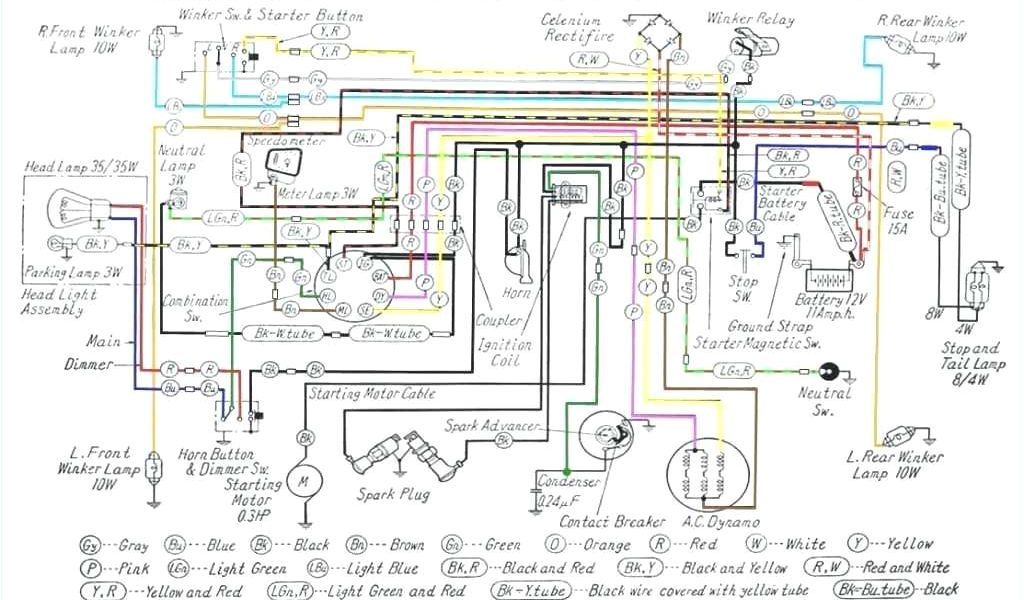 R.Front Winker
Lamp 10W
Winker Sw. & Starter Button
Y,R
Y,R
Celenium
Rectifire
R,W
Y
Bn
Winker Relay
Gy
Bk
Bk
R.Rear Winker
Lamp 10W
Gy
Gy
Bu
LBu
LB
O
O
LBu
LBu
O
O
Bk,Y
Speedometer
Bk,R
Bk,Y
Neutral
Lamp
3W
Head Lamp 35/35W
Meter Lamp 3W
LGn,R
LGn,R
Bk,Y
Bk,Y
Bk,Y
Parking Lamp 3W
Head Light
Assembly
Combination
Sw.
Gn
Gn
Bn
Bn
HL
ML
SE
R
R
P
P
Y
Y
Bk
Bk
Bk
Bk
Horn
Coupler
Ignition
Coil
Bk
Bk
Gn
Gn
Y
Y
Bn
Bn
P
P
LGn,R
Bk
Bk,R
Y,R
Bk
Starter
Battery
Cable
Bk
Bu
Stop
SW.
Bk-R.tube
R
R
R,W
Fuse
15A
Bu
Bk-Bu.tube
Bk-Y.tube
Battery 12V
11Amp.h.
Ground Strap
Starter Magnetic Sw.
8W
4W
Stop and
Tail Lamp
8/4W
Bk-W.tube
Bk-W.tube
Main
Dimmer
R
R
Bu
Bu
Bk
Bk
Starting Motor Cable
LGn,R
Neutral
Sw.
L.Front
Winker Lamp
10W
Horn Button
& Dimmer Sw.
Starting
Motor
0.3HP
Bk
M
Spark Plug
Spark Advancer
Bk
Condenser
0.24μF
Contact Breaker
A.C.Dynamo
L.Rear Winker
Lamp 10W
Gy---Gray Bu---Blue Bk---Black Bn---Brown Gn---Green O---Orange R---Red W---White Y---Yellow
P---Pink LGn---Light Green LBu---Light Blue Bk,R---Black and Red Bk,Y---Black and Yellow R,W---Red and White
Y,R---Yellow and Red LGn,R---Light Green and Red Bk-Y.tube---Black wire covered with yellow tube Bk-Bu.tube---Black